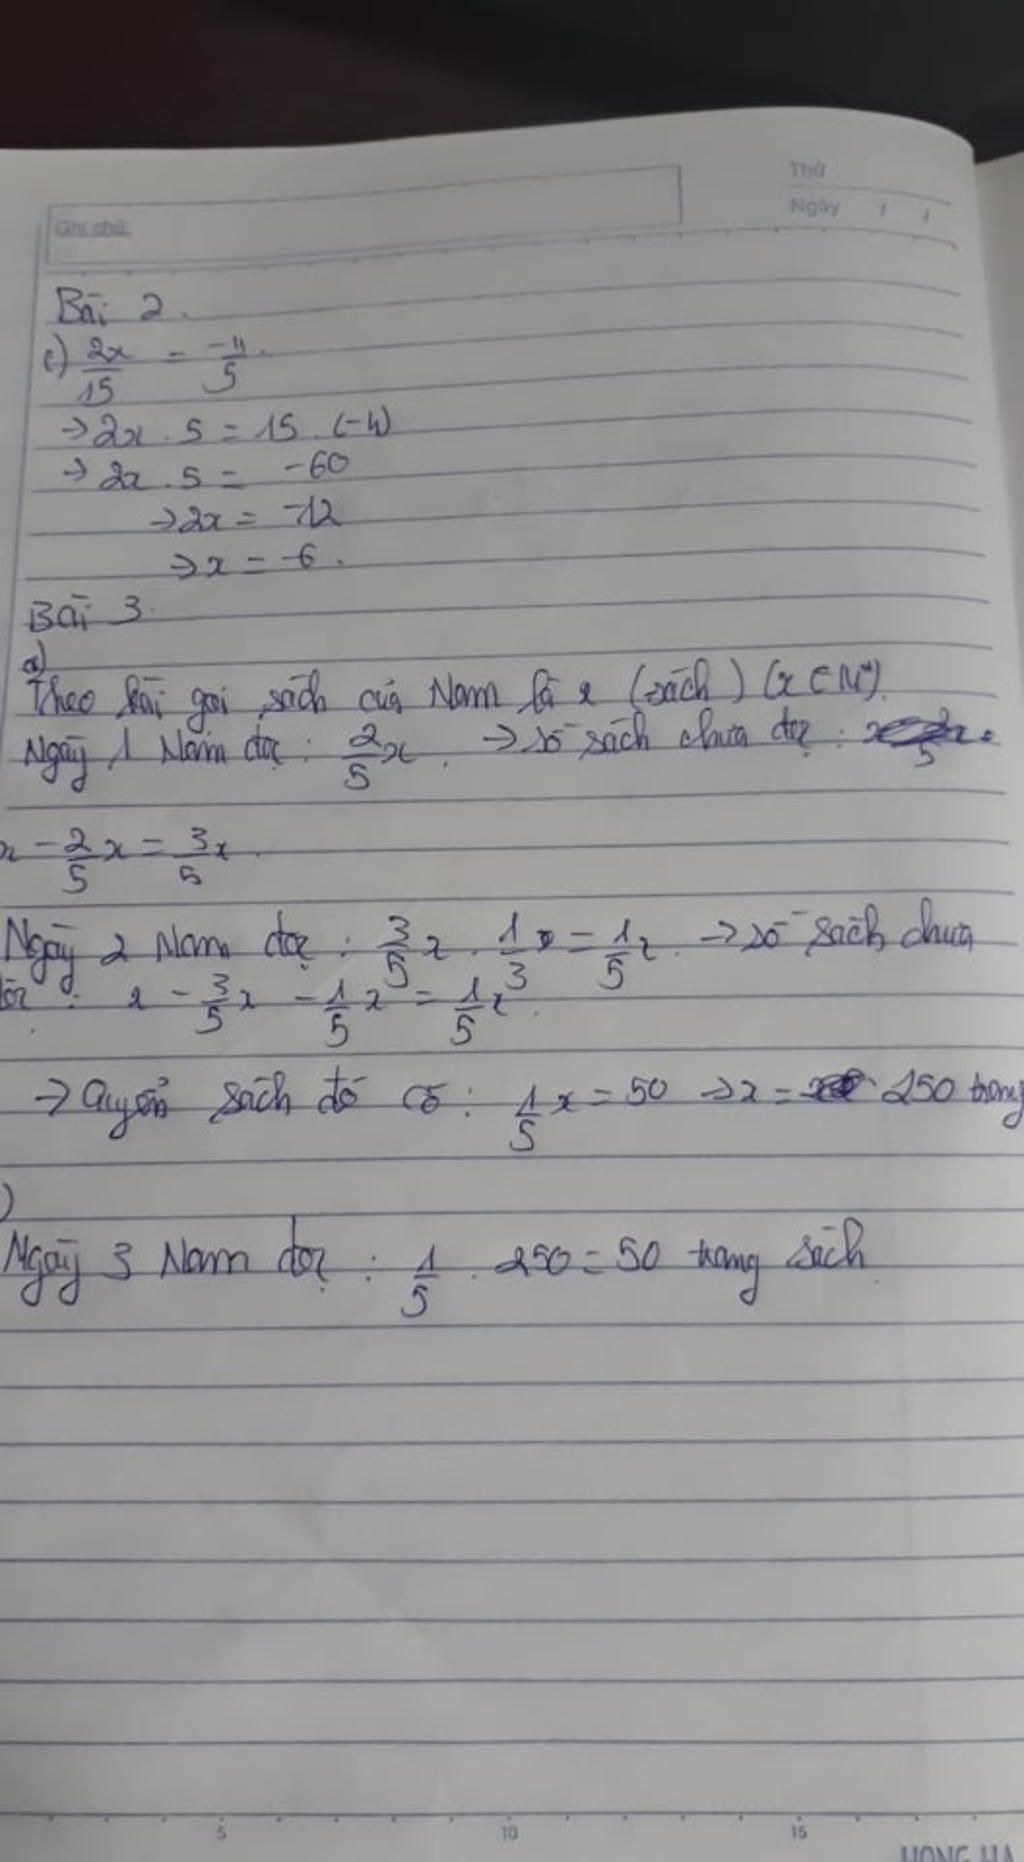 Thứ
Ngày / /
Ghi chú:
Bài 2.
c) 2x/15 = -4/5.
→ 2x . 5 = 15 . (-4)
→ 2x . 5 = -60
→ 2x = -12
→ x = -6.
Bài 3.
a)
Theo bài gọi sách của Nam là x (sách) (x ∈ N*).
Ngày 1 Nam đọc : 2/5 x. → số sách chưa đọc :
x - 2/5 x = 3/5 x.
Ngày 2 Nam đọc : 3/5 x . 1/3 = 1/5 x. → số sách chưa
: x - 3/5 x - 1/5 x = 1/5 x.
→ Quyển sách đó có : 1/5 x = 50 → x = 250 trang
)
Ngày 3 Nam đọc : 1/5 . 250 = 50 trang sách.
5 10 15
HONG HA